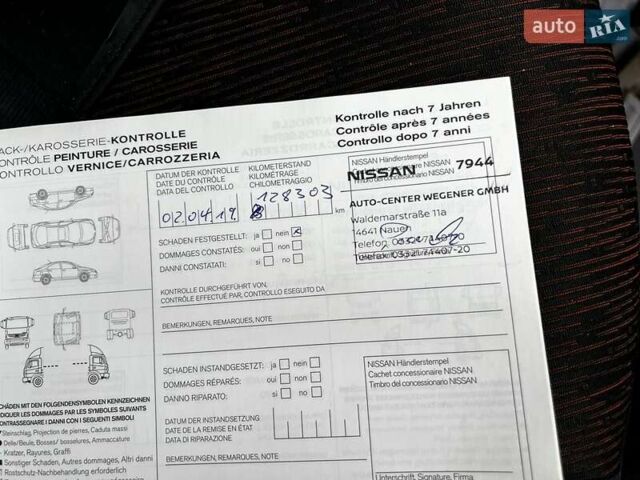 auto RIA
.com
Kontrolle nach 7 Jahren
Contrôle après 7 années
Controllo dopo 7 anni
ACK-/KAROSSERIE-KONTROLLE
ONTRÔLE PEINTURE / CAROSSERIE
ONTROLLO VERNICE/CARROZZERIA
DATUM DER KONTROLLE
DATE DU CONTRÔLE
DATA DEL CONTROLLO
KILOMETERSTAND
KILOMÉTRAGE
CHILOMETRAGGIO
02.04.19
128303
km
SCHADEN FESTGESTELLT: ja nein x
DOMMAGES CONSTATÉS: oui non
DANNI CONSTATATI: si non
NISSAN Händlerstempel
NISSAN 7944
Timbro del concessionario NISSAN
AUTO-CENTER WEGENER GMBH
Waldemarstraße 11a
14641 Nauen
Telefon
Telefax 03321/7440-20
KONTROLLE DURCHGEFÜHRT VON:
CONTRÔLE EFFECTUÉ PAR, CONTROLLO ESEGUITO DA
BEMERKUNGEN, REMARQUES, NOTE
SCHADEN INSTANDGESETZT: ja nein
DOMMAGES RÉPARÉS: oui non
DANNO RIPARATO: si non
NISSAN Händlerstempel
Cachet concessionaire NISSAN
Timbro del concessionario NISSAN
DATUM DER INSTANDSETZUNG
DATE DE LA REMISE EN ÉTAT
DATA DI RIPARAZIONE
BEMERKUNGEN, REMARQUES, NOTE
Unterschrift, Signature, Firma
CHÄDEN MIT DEN FOLGENDENSYMBOLEN KENNZEICHNEN
DIQUER LES DOMMAGES PAR LES SYMBOLES SUIVANTS
ONTRASSEGNARE I DANNI CON I SEGUENTI SIMBOLI
Steinschlag, Projection de pierres, Caduta massi
Delle/Beule, Bosses/ bosselures, Ammaccature
Kratzer, Rayures, Graffi
Sonstiger Schaden, Autres dommages, Altri danni
Rostschutz-Nachbehandlung erforderlich